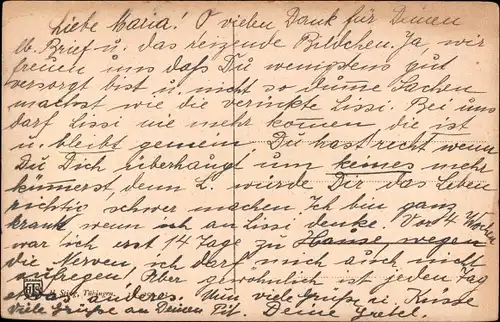 Liebe Maria! O vielen Dank für Deinen
lb. Brief u. das reizende Bildchen. Ja, wir
freuen uns dafs Du wenigstens gut
versorgt bist u. nicht so dume Sachen
machst wie die verrükte Lissi. Bei uns
darf Lissi nie mehr komen die ist
u. bleibt gemein. Du hast recht wenn
Du Dich überhaupt um keines mehr
kümerst, denn L. würde Dir das Leben
richtig schwer machen. Ich bin ganz
krank wenn ich an Lissi denke. Vor 4 Wochen
war ich erst 14 Tage zu Hause, wegen
die Nerven ich darf mich auch nicht
aufregen! Aber gewöhnlich ist jeden Tag
etwas anderes. Nun viele Grüße u. Küsse
Viele Grüße an Deinen Deine Gretel.
Tübingen.